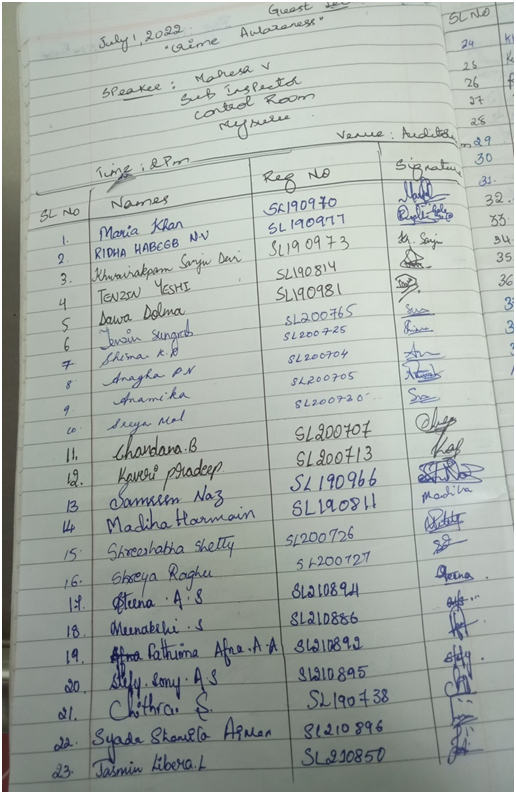 Guest
July 1, 2022
"Crime Awareness"
Speaker : Mahesa V
Sub Inspector
Control Room
Mysuru
Time : 2 Pm
Venue : Auditor
SL No Names Reg No Signature
1. Maria Khan SL190970
2 RIDHA HABEEB N.V SL190977
3. Khwairakpam Sanju Devi SL190973 Kh. Sanju
4 TENZIN YESHI SL190814
5 Dawa Dolma SL190981
6 Tenzin SL200765
7 Shima K.P SL200725
8 Anagha P.N SL200704
9. Anamika SL200705
10. Sreya Mal SL200720
11. Chandana.B SL200707
12. Kaveri Pradeep SL200713
13 Samreen Naz SL190966
14 Madiha Harmain SL190811 Madiha
15. Shreeshabha Shetty SL200726
16. Shreya Raghu SL200727
17. Steena . A . S SL210894 Steena
18. Meenakshi . S SL210886
19. Fathima Afna . A . A SL210892
20. Stefy Sony . A S SL210895 Stefy
21. Chithra . S. SL190738
22. Syada Aiman SL210896
23. Jasmin Libera . L SL210850
SL No
24
25
26
27
28
29
30
31.
32.
33.
34.
35
36